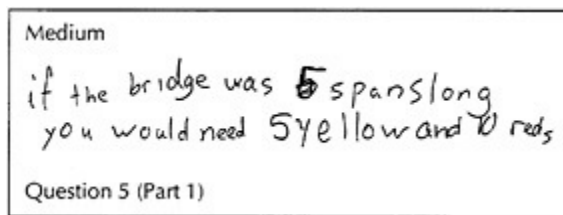 Medium
if the bridge was 5 spans long
you would need 5 yellow and 10 reds
Question 5 (Part 1)